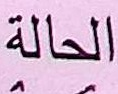 الحالة